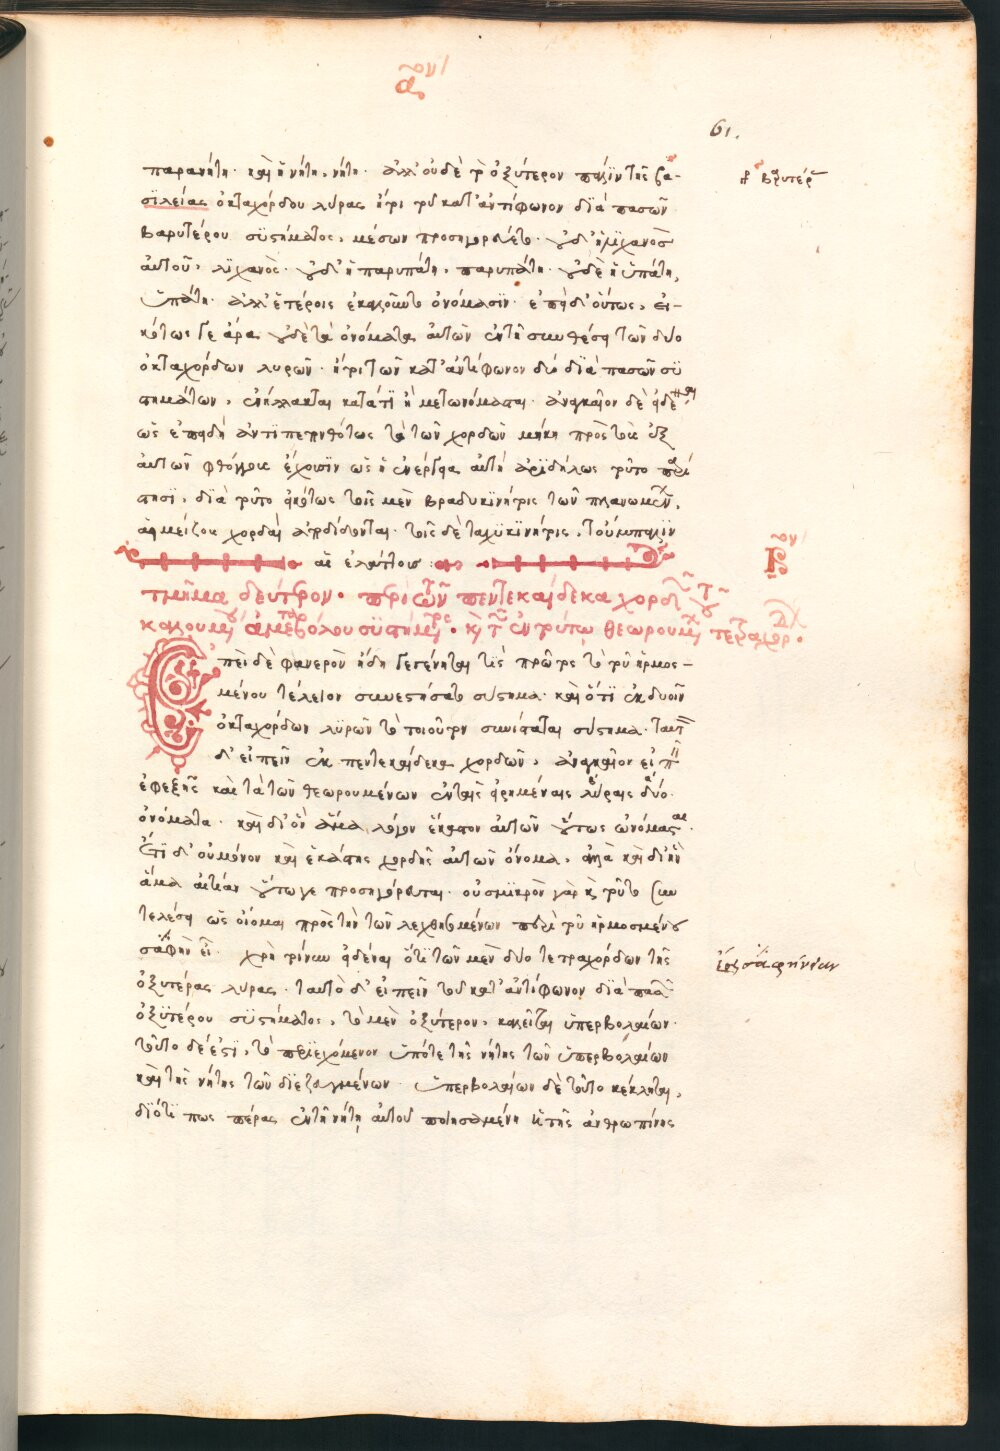 ᾱον
61.
παρανήτη· καὶ ἡ νήτη, νήτη· ἀλλ' οὐδὲ τὸ ὀξύτερον πάλιν τῆς βα-
σιλείας ὀκταχόρδου λύρας ἤτοι τοῦ κατ' ἀντίφωνον διὰ πασῶν
βαρυτέρου συστήματος, μέσων προσηγορεύετο· οὐδ' ἡ λιχανὸς
αὐτοῦ, λιχανός· οὐδ' ἡ παρυπάτη, παρυπάτη· οὐδὲ ἡ ὑπάτη,
ὑπάτη· ἀλλ' ἑτέροις ἐκαλοῦντο ὀνόμασιν· ἐπεὶ δ' οὕτως, εἰ-
κότως γε ἄρα οὐδὲ τὰ ὀνόματα αὐτῶν ἐν τῇ συνθέσει τῶν δύο
ὀκταχόρδων λυρῶν· ἤτοι τῶν κατ' ἀντίφωνον δύο διὰ πασῶν συ
στημάτων, ἐνήλλακται κατά τι ἢ μετωνόμασται· ἀναγκαῖον δὲ
ὡς ἐπειδὴ ἀντιπεπονθότως τὰ τῶν χορδῶν μήκη πρὸς τοὺς ἐξ
αὐτῶν φθόγγους ἔχουσιν ὡς ἡ ἐνέργεια αὐτὴ ἀριδήλως τοῦτο παρί
στησι, διὰ τοῦτο εἰκότως τοῖς μὲν βραδυκινήτοις τῶν πλανωμένων,
αἱ μείζους χορδαὶ ἀποδίδονται· τοῖς δὲ ταχυκινήτοις, τοὔμπαλιν
αἱ ἐλάττους
τμῆμα δεύτερον· περὶ τῶν πεντεκαίδεκα χορδῶν τοῦ
καλουμένου ἀμεταβόλου συστήματος· καὶ τῶν ἐν τούτῳ θεωρουμένων τετραχόρδων·
Ἐπεὶ δὲ φανερὸν ἤδη γεγένηται τίς πρῶτος τὸ τοῦ ἡρμοσ-
μένου τέλειον συνεστήσατο σύστημα· καὶ ὅτι ἐκ δυοῖν
ὀκταχόρδων λυρῶν τὸ τοιοῦτον συνίσταται σύστημα· ταυτὸν
δ' εἰπεῖν ἐκ πεντεκαίδεκα χορδῶν, ἀναγκαῖον εἰπεῖν
ἐφεξῆς καὶ τὰ τῶν θεωρουμένων ἐν ταῖς εἰρημέναις λύραις δύο
ὀνόματα· καὶ δι' ὃν ἅμα λόγον ἕκαστον αὐτῶν οὕτως ὠνόμασται·
Ἔτι δ' οὐ μόνον καὶ ἑκάστης χορδῆς αὐτῶν ὄνομα, ἀλλὰ καὶ δι' ἣν
ἅμα αἰτίαν οὕτωγε προσηγόρευται· οὐ σμικρὸν γὰρ καὶ τοῦτο συν
τελέσει ὡς οἴομαι πρὸς τὴν τῶν λεχθησομένων περὶ τοῦ ἡρμοσμένου
σαφήνειαν· χρὴ τοίνυν εἰδέναι ὅτι τῶν μὲν δύο τετραχόρδων τῆς
ὀξυτέρας λύρας· ταυτὸ δ' εἰπεῖν τοῦ κατ' ἀντίφωνον διὰ πασῶν
ὀξυτέρου συστήματος, τὸ μὲν ὀξύτερον, καλεῖται ὑπερβολαίων·
τοῦτο δέ ἐστι, τὸ περιεχόμενον ὑπό τε τῆς νήτης τῶν ὑπερβολαίων
καὶ τῆς νήτης τῶν διεζευγμένων· ὑπερβολαίων δὲ τοῦτο κέκληται,
διότι πως πέρας ἐν τῇ νήτῃ αὐτοῦ ποιησαμένη καὶ τῆς ἀνθρωπίνης